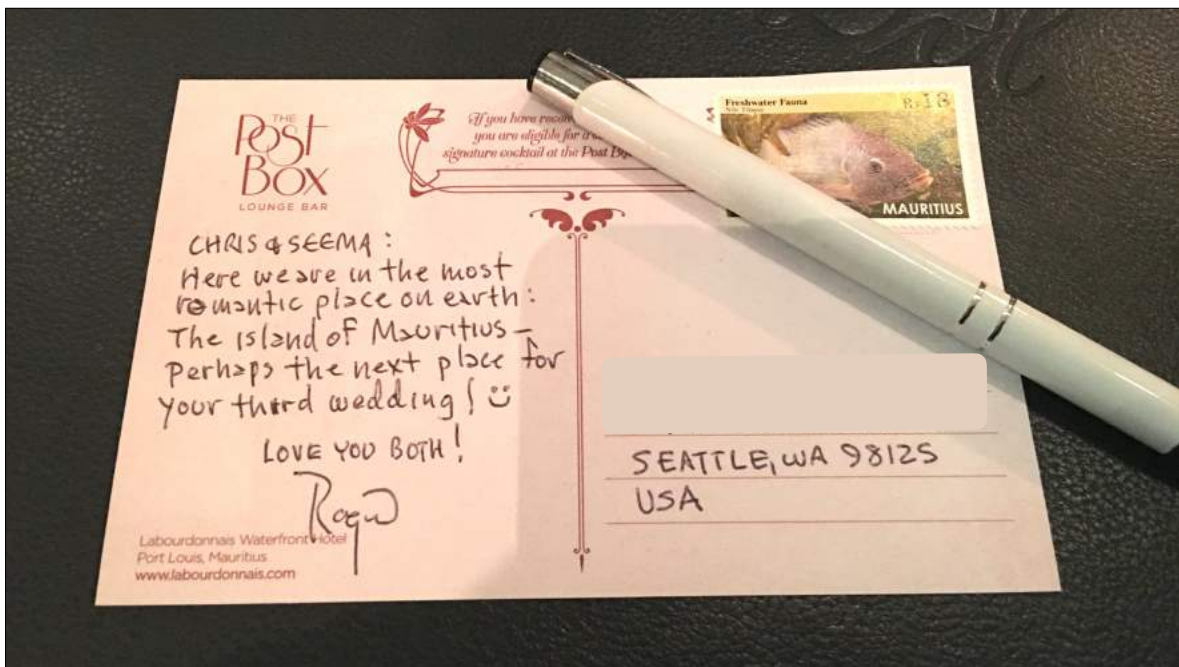 THE
Post
BOX
LOUNGE BAR
If you have
you are eligible for a
signature cocktail at the Post
Freshwater Fauna
Rs 18
MAURITIUS
CHRIS & SEEMA:
Here we are in the most
romantic place on earth:
The island of Mauritius –
Perhaps the next place for
your third wedding!
LOVE YOU BOTH!
SEATTLE, WA 98125
USA
Labourdonnais Waterfront Hotel
Port Louis, Mauritius
www.labourdonnais.com